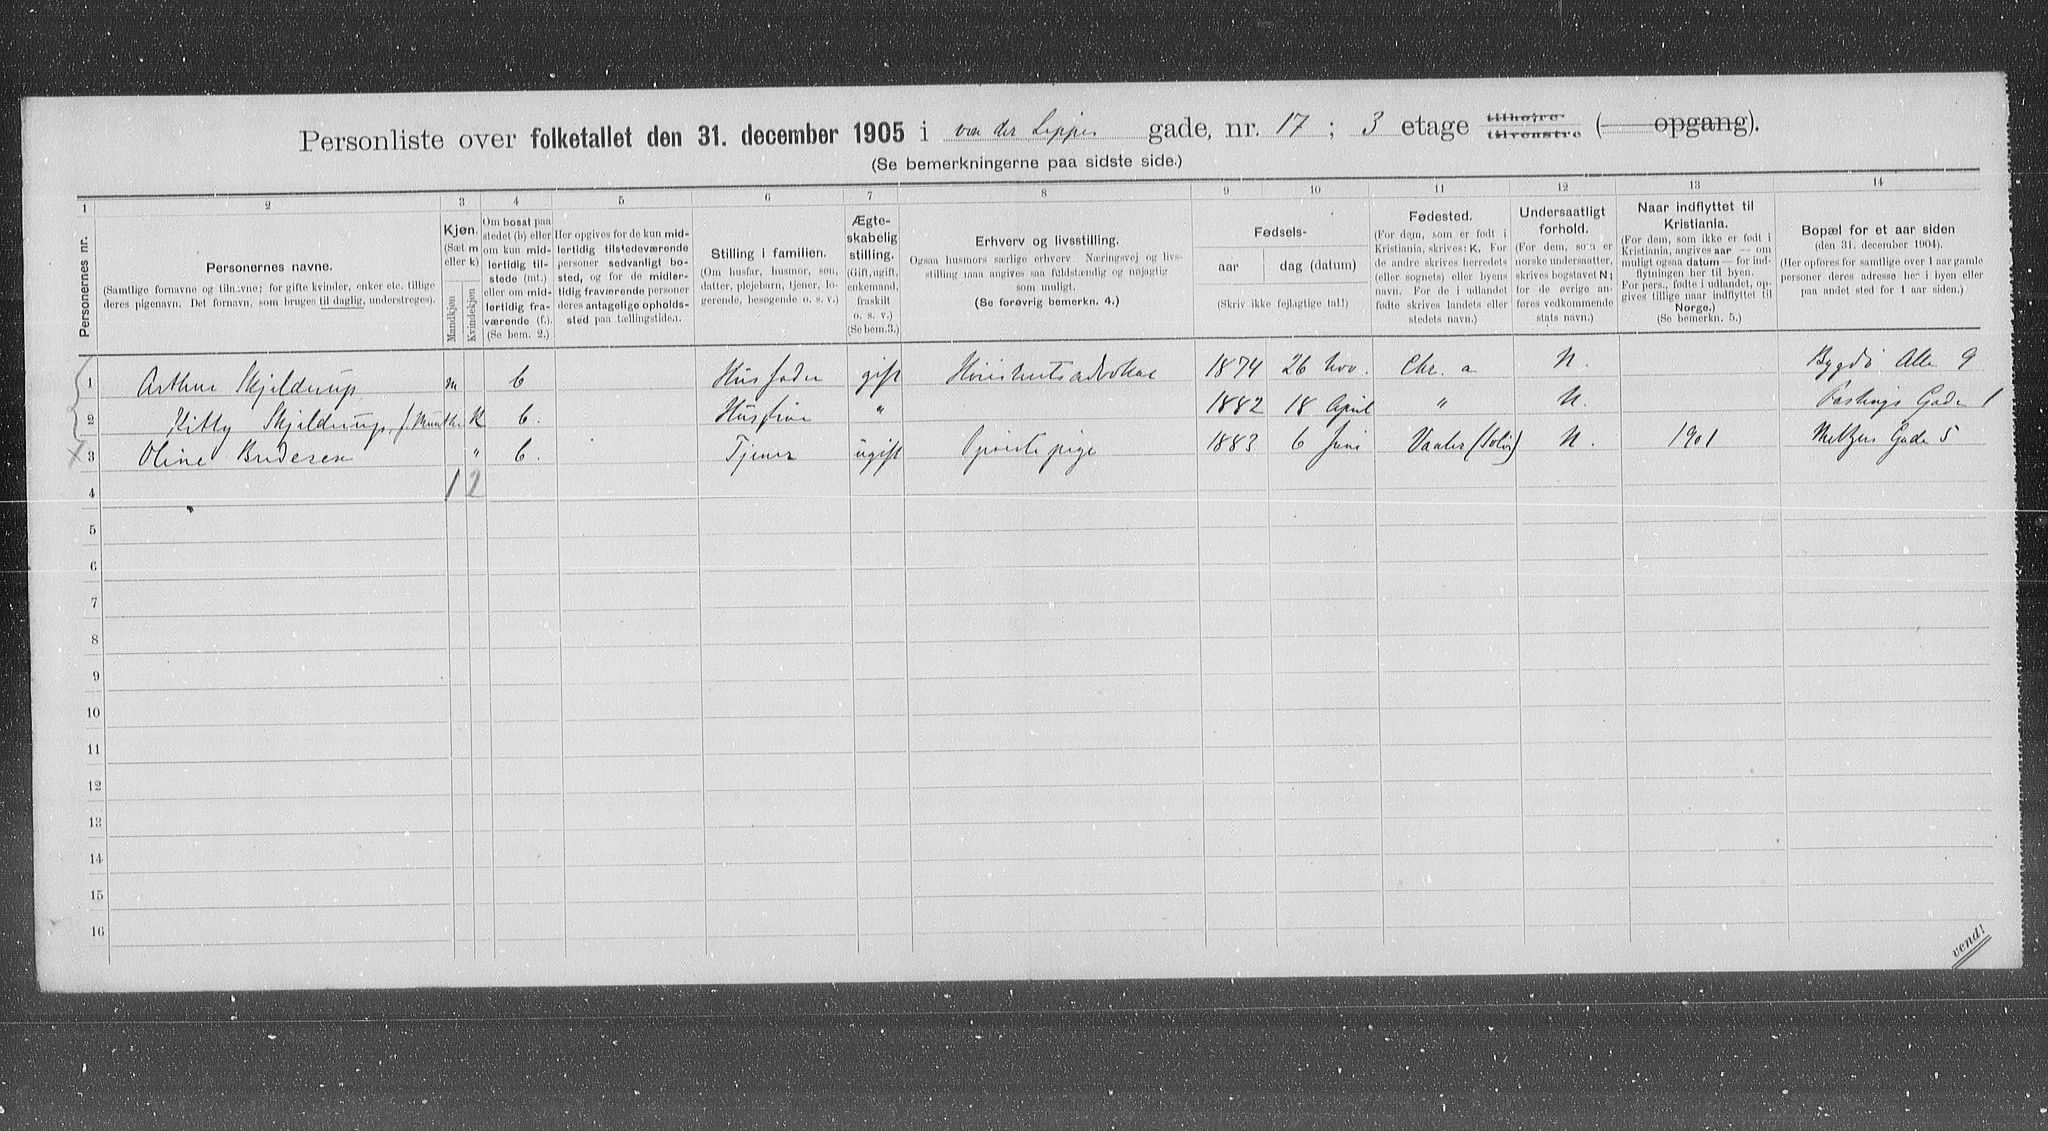 Personliste over folketallet den 31. december 1905 i van der Lippes gade, nr. 17 ; 3 etage tilhøjre tilvenstre ( opgang).
(Se bemerkningerne paa sidste side.)
1 2 3 4 5 6 7 8 9 10 11 12 13 14
Personernes nr.
Personernes navne.
(Samtlige fornavne og tilnavne; for gifte kvinder, enker etc. tillige
deres pigenavn. Det fornavn, som bruges til daglig, understreges).
Kjøn.
(Sæt m
eller k)
Mandkjøn
Kvindekjøn
Om bosat paa
stedet (b) eller
om kun mid-
lertidig til-
stede (mt.)
eller om mid-
lertidig fra-
værende (f.).
(Se bem. 2.)
Her opgives for de kun mid-
lertidig tilstedeværende
personer sedvanlig bo-
sted, og for de midler-
tidig fraværende personer
deres antagelige opholds-
sted paa tællingstiden.
Stilling i familien.
(Om husfar, husmor, søn,
datter, plejebarn, tjener, lo-
gerende, besøgende o. s. v.)
Ægte-
skabelig
stilling.
(Gift, ugift,
enkemand,
fraskilt
o. s. v.)
(Se bem. 3.)
Erhverv og livsstilling.
Ogsaa husmors særlige erhverv Næringsvej og livs-
stilling maa angives saa fuldstændig og nøjagtig
som muligt.
(Se forøvrig bemerkn. 4.)
Fødsels-
aar
dag (datum)
(Skriv ikke fejlagtige tal!)
Fødested.
(For dem, som er født i
Kristiania, skrives: K. For
de andre skrives herredets
(eller sognets) eller byens
navn. For de i udlandet
fødte skrives landets eller
stedets navn.)
Undersaatligt
forhold.
(For dem, som er
norske undersaatter,
skrives bogstavet N;
for de øvrige an-
føres vedkommende
stats navn.)
Naar indflyttet til
Kristiania.
(For dem, som ikke er født i
Kristiania, angives aar — om
muligt ogsaa datum — for ind-
flytningen her til byen.
For pers., fødte i udlandet, op-
gives tillige naar indflyttet til
Norge.)
(Se bemerkn. 5.)
Bopæl for et aar siden
(den 31. december 1904).
(Her opføres for samtlige over 1 aar gamle
personer deres adresse her i byen eller
paa andet sted for 1 aar siden.)
1 Arthur Skjelderup m b Husfader gift Høiesteretsadvokat 1874 26 Nov. Chr. a N. Bygdø Alle 9
2 Kitty Skjelderup f. Munthe K b. Husfrue " 1882 18 April " N. Gade 1
3 Oline " b. Tjener ugift pige 1883 6 Juni Vaaler (Solør) N. 1901 Meltzers Gade 5
4 1 2
5
6
7
8
9
10
11
12
13
14
15
16
vend!